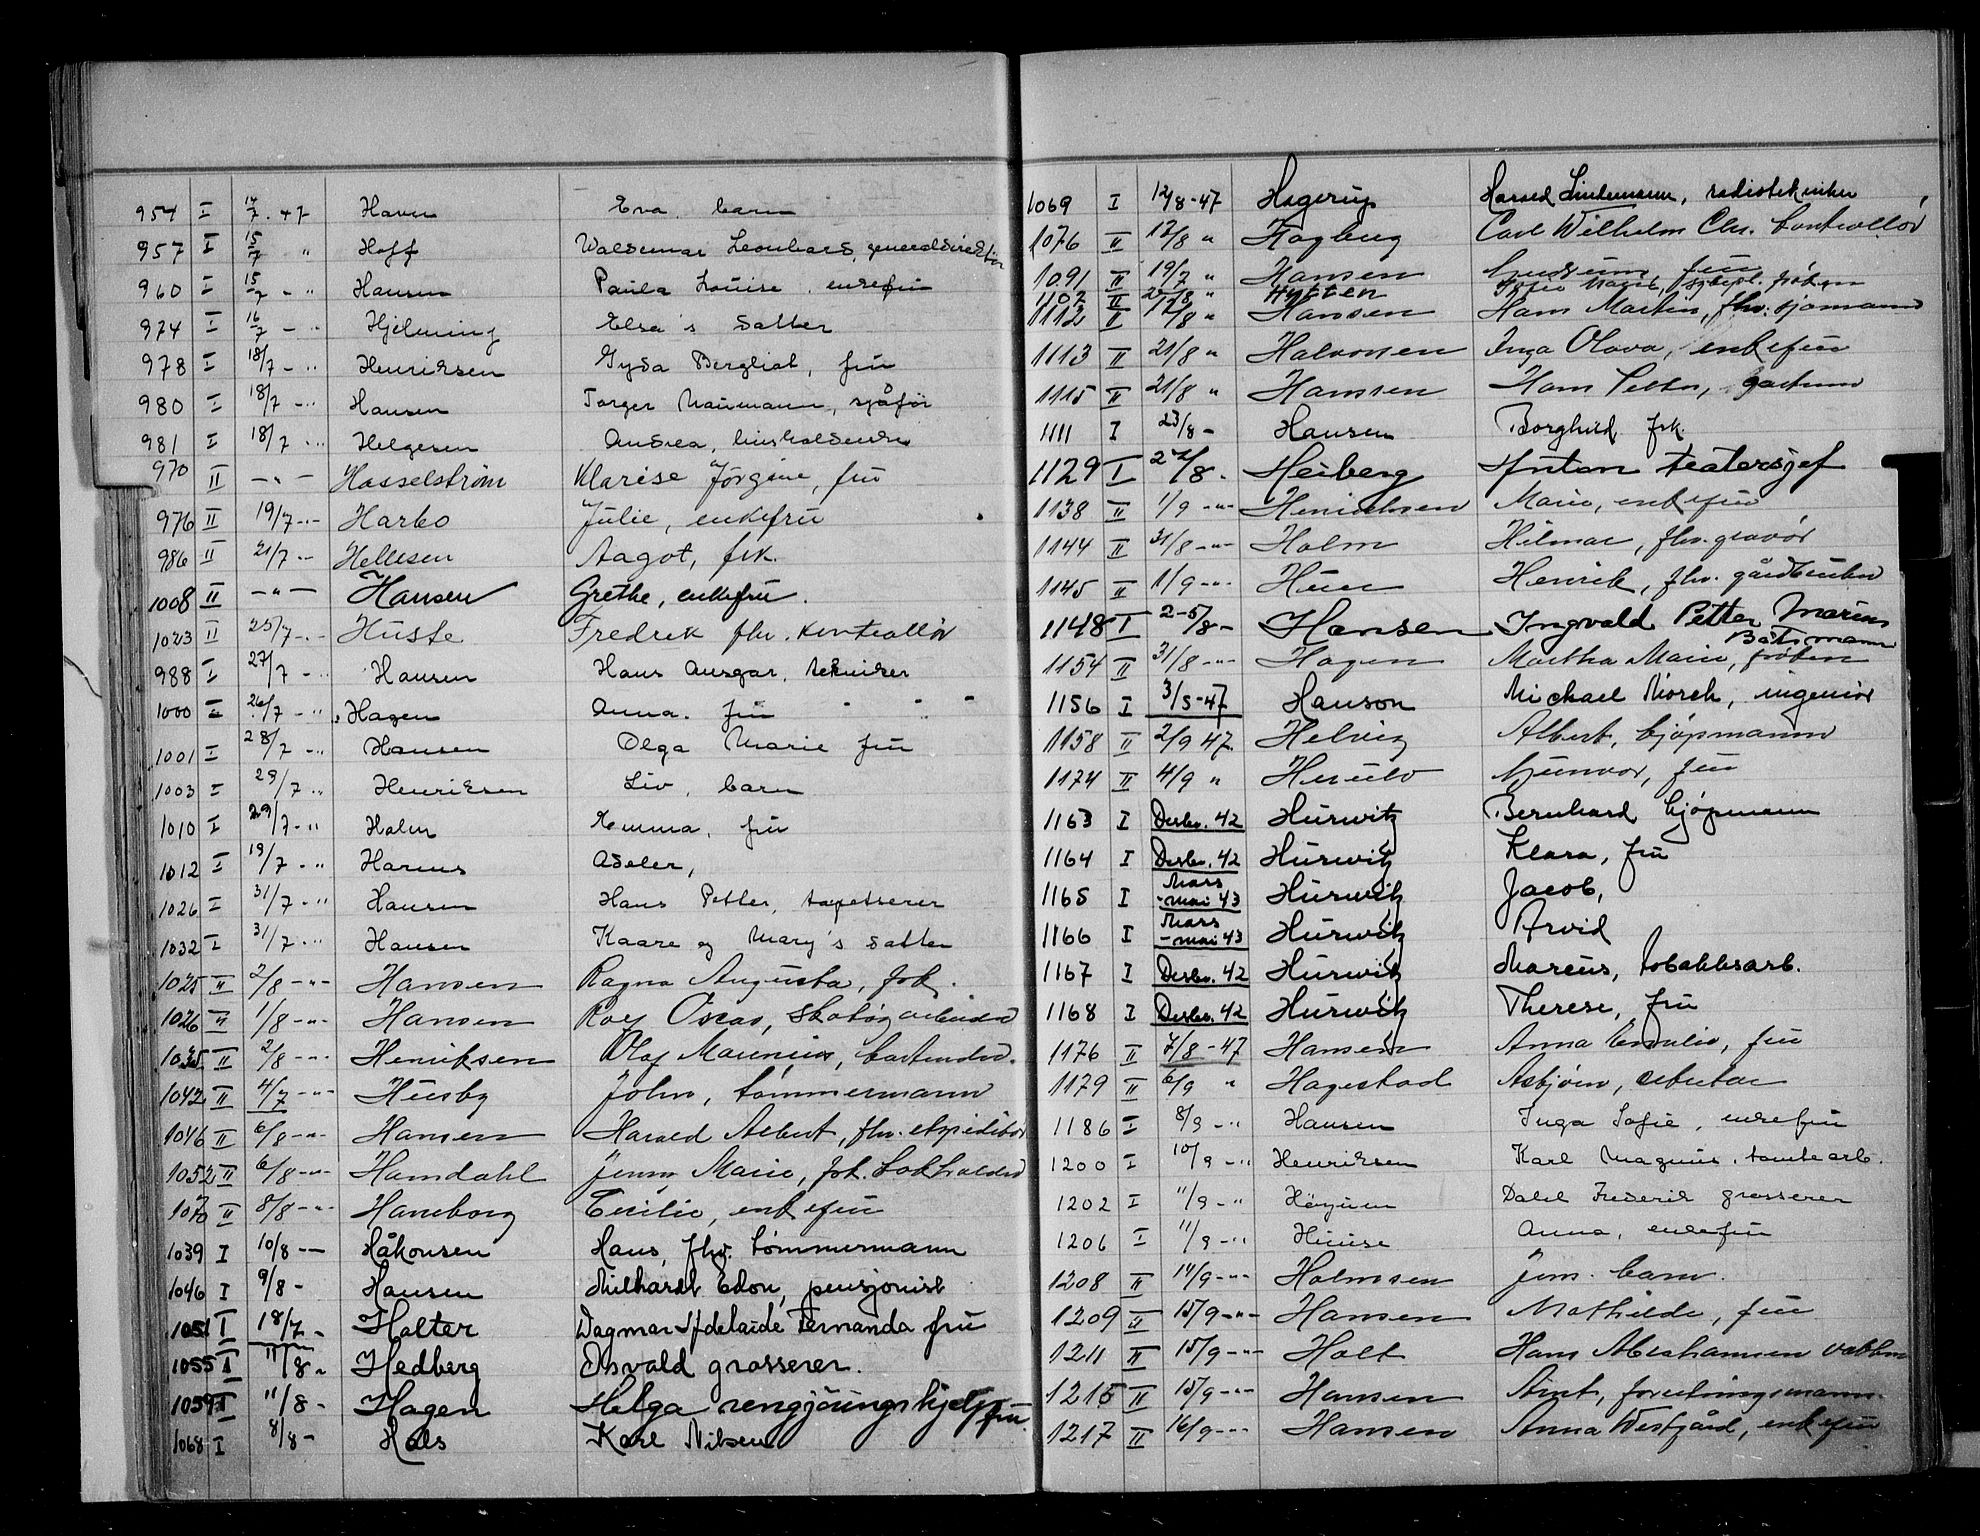 954 I 14/7 . 47 Haven Eva, barn
957 I 15/7 " Hoff Waldemar Leonhard, generaldirektør
960 I 15/7 - " Hansen Paula Louise, enkefru
974 I 16/7 - " Hjelming Elsa's datter
978 I 18/7 - " Henriksen Gyda Bergliot, fru
980 I 18/7 - " Hansen Torger Naumann, sjåfør
981 I 18/7 - " Helgesen Andrea,
970 II - " - Hasselstrøm Klarise Jørgine, fru
976 II 19/7 - " - Harbo Julie, enkefru
986 II 21/7 - " Hellesen Aagot, frk.
1008 II - " - Hansen Grethe, enkefru.
1023 II 25/7 - " - Huste Fredrik fhv. kontrollør
988 I 27/7 - " Hansen Hans Ansgar, tekniker
1000 I 26/7 - " Hagen Anna. fru
1001 I 28/7 - " Hansen Olga Marie fru
1003 I 29/7 " Henriksen Liv, barn
1010 I 29/7 - " Holm Emma, fru
1012 I 19/7 - " Harms Adeler,
1026 I 31/7 - " Hansen Hans Petter, tapetserer
1032 I 31/7 - " Hansen Kaare og Mary's datter
1025 II 2/8 - " - Hansen Ragna Augusta, frk.
1026 II 1/8 - " - Hansen Rolf Oscar, skotøyarbeider
1035 II 2/8 - " - Henriksen Olaf Maurenius, bartender.
1042 II 4/7 - " - Husby John, tømmermann
1046 II 6/8 - " - Hansen Harald Albert, fhv. ekspeditør
1052 II 6/8 - " - Hamdahl Jenny Marie, frk. bokholder
1070 II 8/8 - " - Haneborg Cecilie, enkefru
1039 I 10/8 - - Håkonsen Hans, fhv. tømmermann
1046 I 9/8 - Hansen Milhardt Edon, pensjonist
1051 I 18/7 - Holter Dagmar Adelaide Fernanda fru
1055 I 11/8 - Hedberg Osvald grosserer.
1059 I 11/8 - Hagen Helga rengjöringshjelp fru
1068 I 8/8 - Hals Karl Nilsen
1069 I 12/8 - 47 Hagerup Harald Lindemann, radiotekniker
1076 II 12/8 " Hagberg Carl Wilhelm Chr. kontrollør
1091 II 19/7 " Hansen Gudrun, fru
1107 II 20/8 " Hytten Sofie Marie, frøken
1112 II 17/8 " Hansen Hans Martin, fhv. sjømann
1113 II 21/8 " Halvorsen Inga Olava, enkefru
1115 II 21/8 " Hansen Hans Petter, gartner
1111 I 23/8 - Hansen Borghild frk.
1129 I 22/8 - Heiberg Anton teatersjef
1138 II 1/9 - " - Henriksen Marie, enkefru
1144 II 31/8 - " - Holm Hilmar, fhv. gravør
1145 II 1/9 - " - Huer Henrik, fhv. gårdbruker
1148 I 25/8 - Hansen Ingvald Petter Marius Båtsmann
1154 II 31/8 - " - Hagen Martha Marie, frøken
1156 I 3/5 - 47 Hanson Michael Morch, ingeniør
1158 II 2/9 47. Helvig Albert, kjøpmann
1174 II 4/9 " Herulv Gunvor, fru
1163 I Desbr. 42 Hurwitz Bernhard kjøpmann
1164 I Desbr. 42 Hurwitz Klara, fru
1165 I Mars - mai 43 Hurwitz Jacob,
1166 I Mars - mai 43 Hurwitz Arvid
1167 I Desbr. 42 Hurwitz Marcus, tobakksarb.
1168 I Desbr. 42 Hurwitz Therese, fru
1176 II 7/8 - 47 Hansen Anna Emilie, fru
1179 II 6/9 " Hagestad Asbjørn, sekretær
1186 I 8/9 - " Hansen Inga Sofie, enkefru
1200 I 10/9 - " Henriksen Karl Magnus, tomtearb.
1202 I 11/9 - " Høyum Dahl Frederik grosserer
1206 I 11/9 - " Huuse Anna, enkefru
1208 II 14/9 - " - Holmsen Jens. barn.
1209 II 15/9 - " - Hansen Mathilde, fru
1211 II 15/9 - " - Holt Hans Abrahamsen
1215 II 15/9 - " - Hansen Arnt, forretningsmann.
1217 II 16/9 - " - Hansen Anna Westgård, enkefru